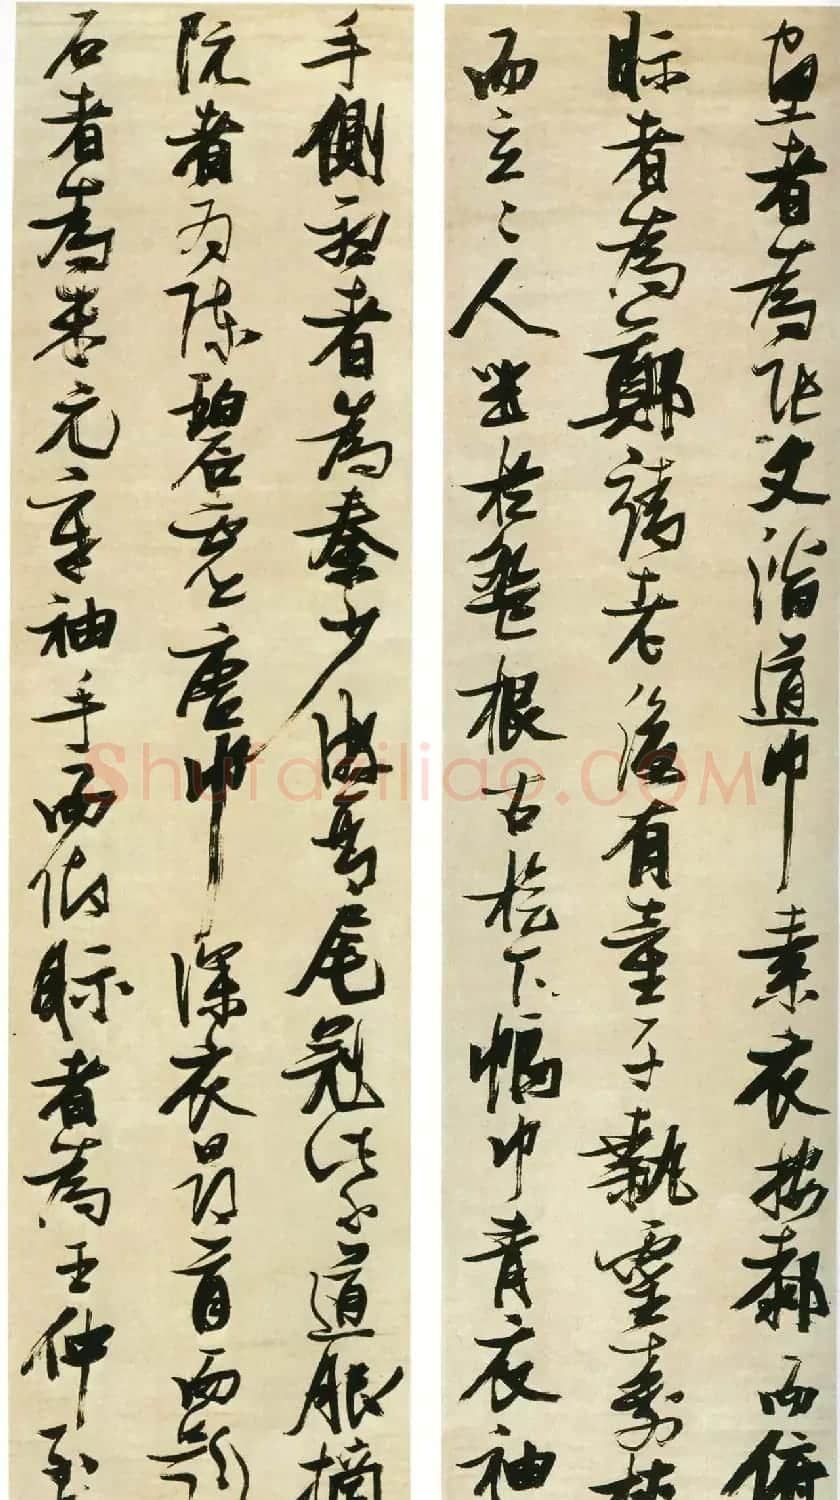 畫者為張文潛道巾素衣按膝而俯
眎者為鄭靖老後有童子執靈壽杖
而立二人坐於盤根古檜下幅巾青衣袖
手側聽者為秦少游琴尾冠紫道服摘
阮者為陳碧虛唐巾深衣昂首而題
石者為米元章袖手而仰眎者為王仲至
Shufaziliao.COM